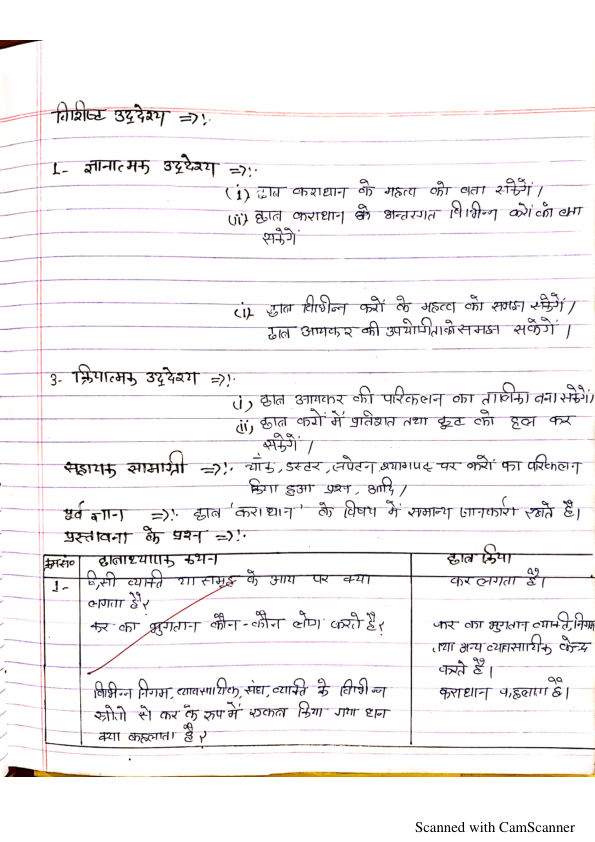 विशिष्ट उद्देश्य =>!.
1- ज्ञानात्मक उद्देश्य =>!.
(i) छात्र कराधान के महत्व को बता सकेगें।
(ii) छात्र कराधान के अन्तरगत विभिन्न करों को बता
सकेगें
(i) छात्र विभिन्न करों के महत्व को समझ सकेगें।
छात्र आयकर की उपयोगीता को समझ सकेंगें।
3- क्रियात्मक उद्देश्य =>!.
(i) छात्र आयकर की परिकलन का तालिका बना सकेगें।
(ii) छात्र करों में प्रतिशत तथा छूट को हल कर
सकेगें।
सहायक सामाग्री =>!. चॉक, डस्टर, लपेटन श्यामपट पर करों का परिकलन
किया हुआ प्रश्न, आदि।
पूर्व ज्ञान =>!. छात्र 'कराधान' के विषय में समान्य जानकारी रखते है।
प्रस्तावना के प्रश्न =>!.
क्रम सं० छात्राध्यापक कथन छात्र क्रिया
1- किसी व्यक्ति या समूह के आय पर क्या कर लगता है।
लगता है?
कर का भुगतान कौन-कौन लोग करते है? कर का भुगतान व्यक्ति, निगम
तथा अन्य व्यवसायिक केन्द्र
करते है।
विभिन्न निगम, व्यवसायिक, संघ, व्यक्ति के विभिन्न कराधान कहलाता है।
स्त्रोतो से कर के रूप में एकत्र किया गया धान
क्या कहलाता है?
Scanned with CamScanner